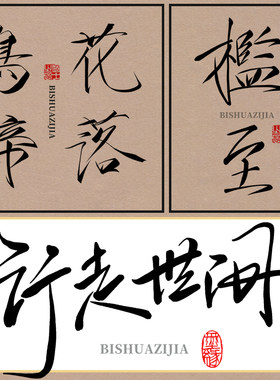 花落
BISHUAZIJIA
檻至
BISHUAZIJIA
行走世间
BISHUAZIJIA